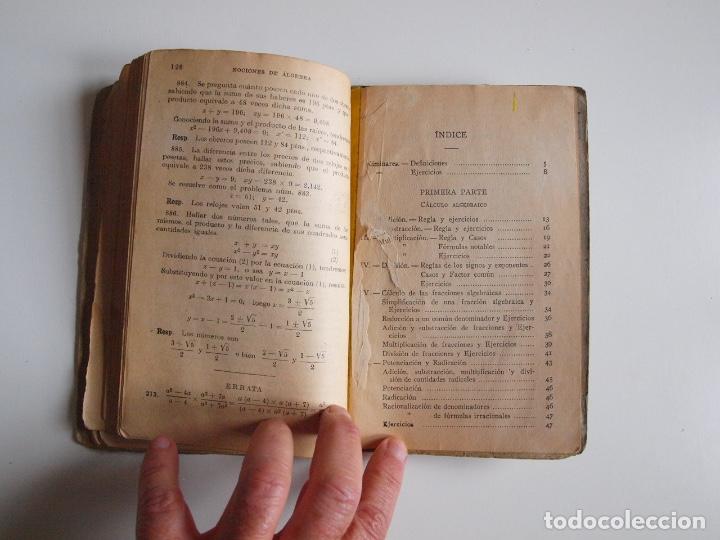 128 NOCIONES DE ÁLGEBRA
884. Se pregunta cuánto poseen cada uno de dos
sabiendo que la suma de sus haberes es 196 pesos y que
producto equivale a 48 veces dicha suma.
x + y = 196; xy = 196 × 48 = 9,408.
Conociendo la suma y el producto de las raíces, tendremos
x² — 196x + 9,408 = 0; x' = 112, x'' = 84.
Resp. Los obreros poseen 112 y 84 ptas, respectivamente
885. La diferencia entre los precios de dos relojes es
pesetas, hallar estos precios, sabiendo que el producto
equivale a 238 veces dicha diferencia.
x — y = 9; xy = 238 × 9 = 2,142.
Se resuelve como el problema núm. 883.
x = 51; y = 42.
Resp. Los relojes valen 51 y 42 ptas.
886. Hallar dos números tales, que la suma de los
mismos, el producto y la diferencia de sus cuadrados sean
cantidades iguales.
x + y = xy (1)
x² — y² = xy (2)
Dividiendo la ecuación (2) por la ecuación (1), tendremos
x — y = 1, o sea y = x — 1
Substituyendo y por este valor en la ecuación (1),
x + (x — 1) = x (x — 1) = x² — x
x² — 3x + 1 = 0; luego x = 3 ± √5 / 2
y = x — 1 = 3 ± √5 / 2 — 1 = 1 ± √5 / 2
Resp. Los números son
3 + √5 / 2 y 1 + √5 / 2 o bien 3 — √5 / 2 y 1 — √5 / 2
ERRATA
213. a² — 4a / a — 4 × a² + 7a / a³ + 7a² = a (a — 4) × a (a + 7) / (a — 4) × a² (a + 7)
ÍNDICE
Definiciones 5
Ejercicios 8
PRIMERA PARTE
CÁLCULO ALGEBRAICO
Regla y ejercicios 13
Regla y ejercicios 16
Regla y Casos 19
Fórmulas notables 21
Ejercicios 22
IV — División. — Reglas de los signos y exponentes 26
Casos y Factor común 27
Ejercicios 30
V — Cálculo de las fracciones algebraicas 34
Simplificación de una fracción algebraica y
Ejercicios 34
Reducción a un común denominador y Ejercicios 36
Adición y substracción de fracciones y Ejer-
cicios 38
Multiplicación de fracciones y Ejercicios 41
División de fracciones y Ejercicios 43
Potenciación y Radicación
Adición, substracción, multiplicación y divi-
sión de cantidades radicales 45
Potenciación 46
Radicación 46
Racionalización de denominadores 46
" de fórmulas irracionales 47
Ejercicios 47
todocoleccion.net